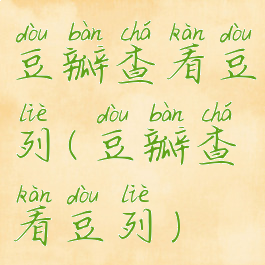 dòu bàn chá kàn dòu
豆瓣查看豆
liè dòu bàn chá
列(豆瓣查
kàn dòu liè
看豆列)